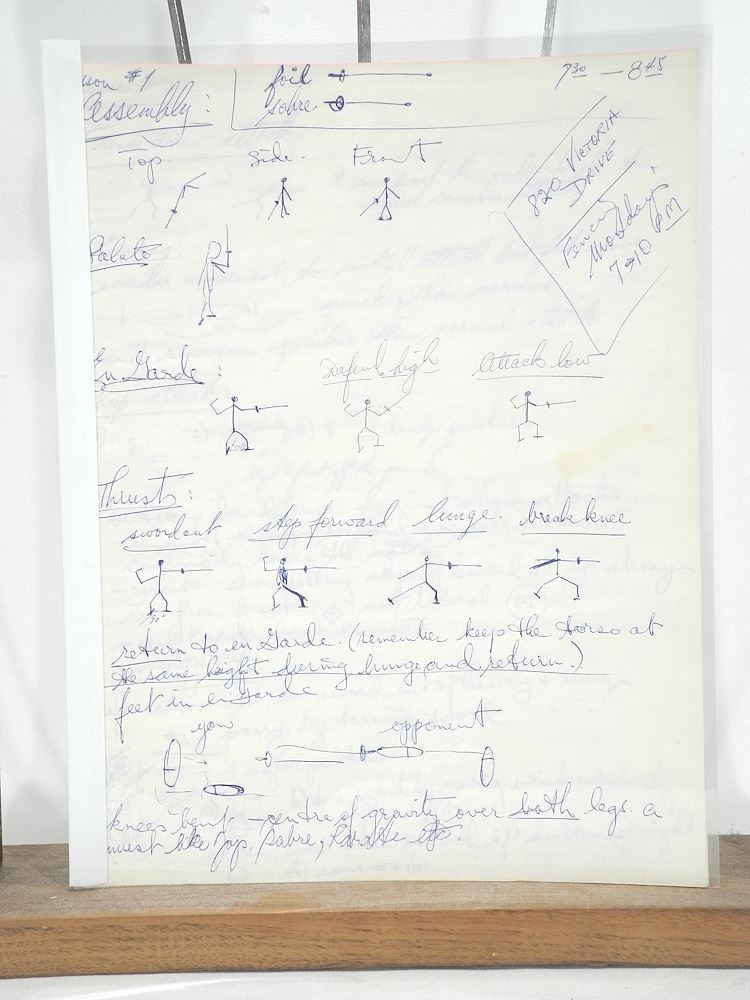 #1
Assembly:
foil
sabre
7³⁰ — 8⁴⁵
820 VICTORIA
DRIVE
Fencing
Mondays
7 → 10 PM
Top Side. Front
Salute
En Garde: Defend high Attack low
Thrust:
sword out step forward lunge. break knee
90°
return to en Garde. (remember keep the torso at
the same height during lunge and return.)
feet in en Garde
you opponent
knees bent - centre of gravity over both legs. a
must like Jap. Sabre, Karate etc.